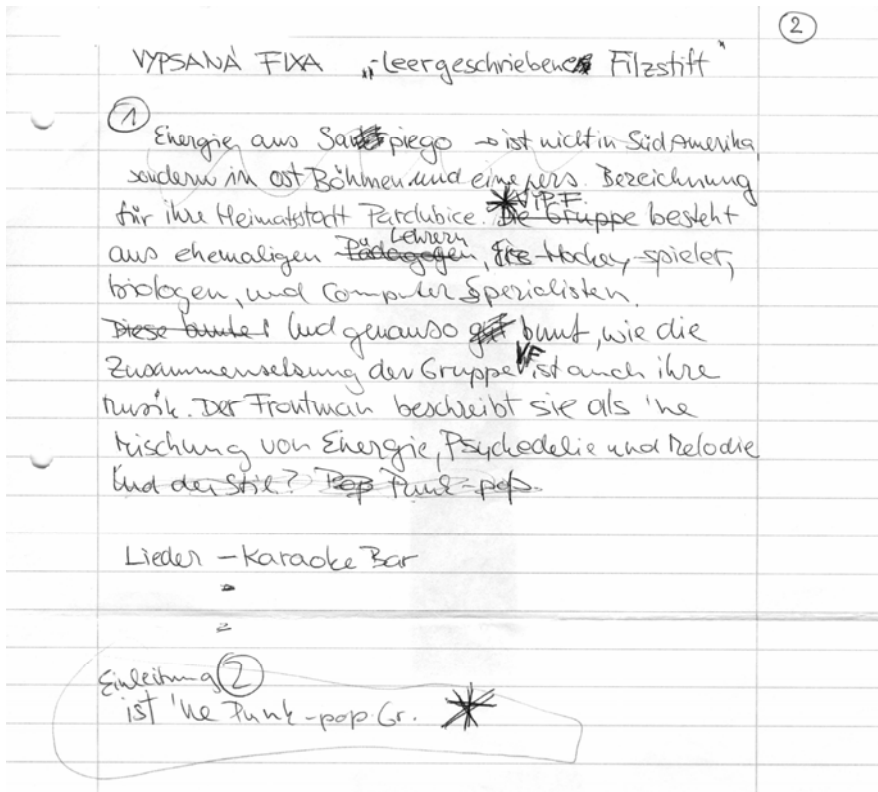 2
VYPSANÁ FIXA „-leergeschriebener Filzstift"
1
Energie aus San piego → ist nicht in Süd Amerika,
sondern in Ost Böhmen und eine pers. Bezeichnung
für ihre Heimatstadt Pardubice. Die Gruppe VYPF. besteht
aus ehemaligen Pädagogen Lehrern, Eis-Hockey-spieler,
biologen, und Computer Spezialisten.
Diese bunte! Und genauso gut bunt, wie die
Zusammensetzung der Gruppe VF ist auch ihre
Musik. Der Frontman beschreibt sie als 'ne
Mischung von Energie, Psychedelie und Melodie
Und der Stil? Pop Punk-pop.
Lieder - Karaoke Bar
Einleitung 2
ist 'ne Punk-pop. Gr.